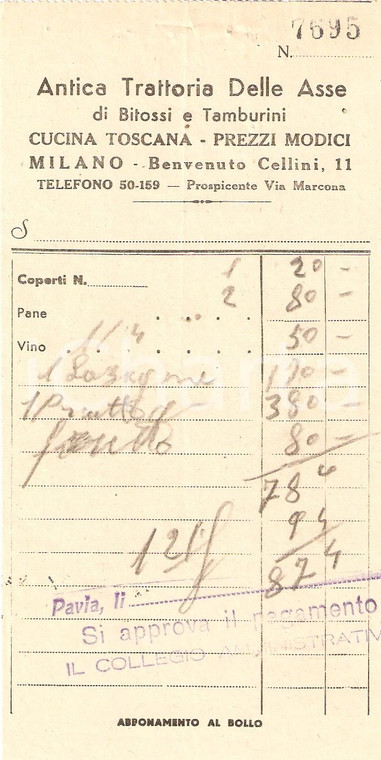 7695
N.
Antica Trattoria Delle Asse
di Bitossi e Tamburini
CUCINA TOSCANA - PREZZI MODICI
MILANO - Benvenuto Cellini, 11
TELEFONO 50-159 — Prospicente Via Marcona
S
Coperti N. 1 20 -
Pane 2 80 -
Vino 1/4 50 -
1 Lasagne
1 Piatto 380 -
80 -
78
12%
94
874
Pavia, li
Si approva il pagamento
IL COLLEGIO AMMINISTRATIV
ABBONAMENTO AL BOLLO